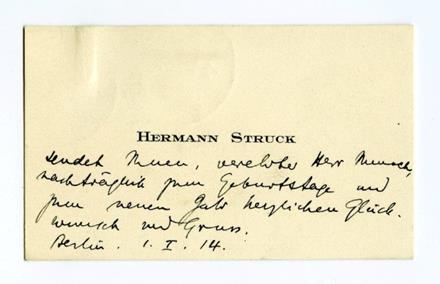 HERMANN STRUCK
sendet Ihnen, verehrter Herr
nachträglich zum Geburtstage und
zum neuen Jahr herzlichen Glück-
wunsch und Gruss.
Berlin. 1. I. 14.